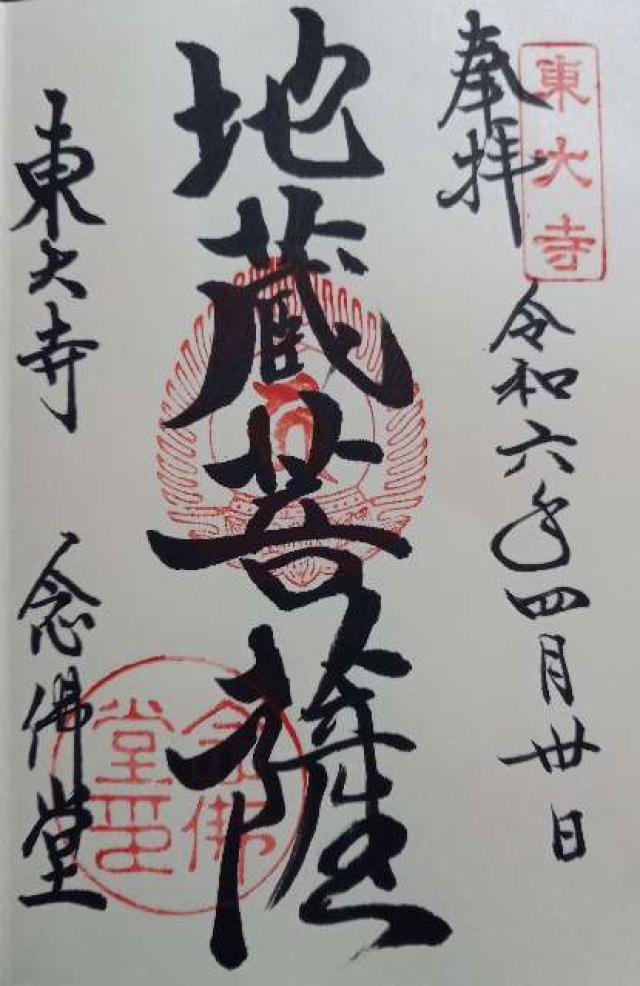 東大寺
奉拝
令和六年四月卅日
地蔵菩薩
東大寺 念佛堂
念佛堂印